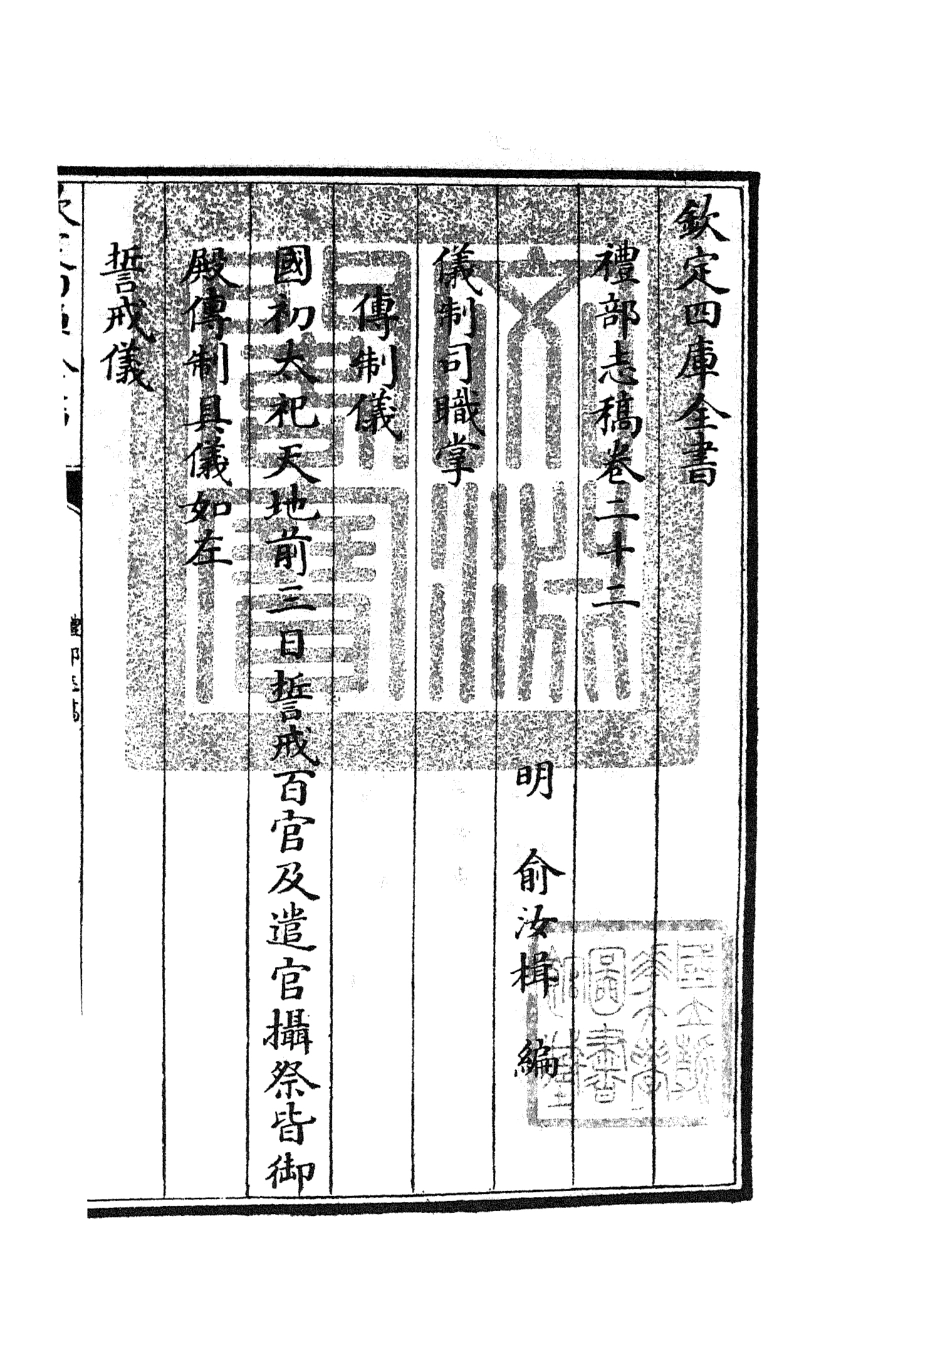 欽定四庫全書
禮部志稿卷二十二
明 俞汝楫 編
儀制司職掌
傳制儀
國初大祀天地前三日誓戒百官及遣官攝祭皆御
殿傳制具儀如左
誓戒儀